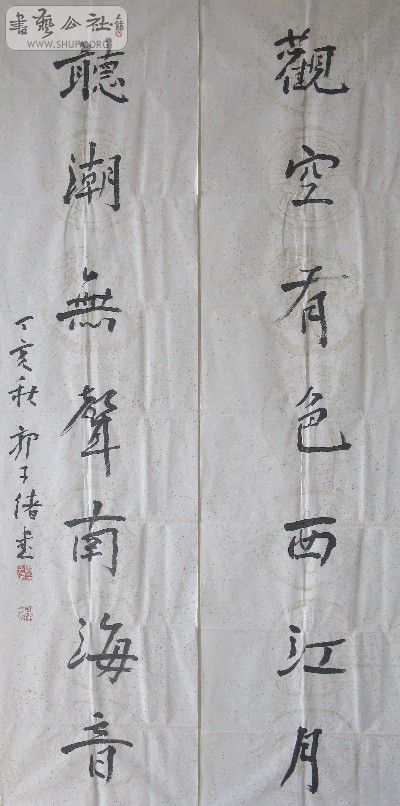 觀空有色西江月
聽潮無聲南海音
丁亥秋郭子緒書
書藝公社
WWW.SHUFA.ORG